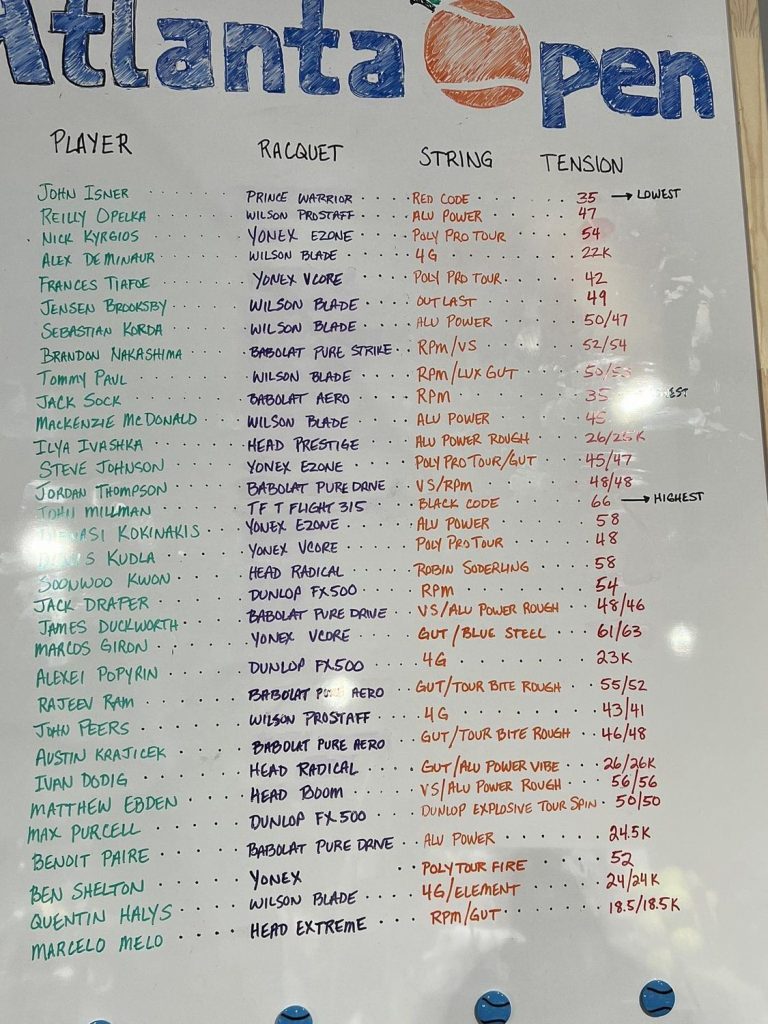 Atlanta Open
PLAYER RACQUET STRING TENSION
JOHN ISNER PRINCE WARRIOR RED CODE 35 → LOWEST
REILLY OPELKA WILSON PROSTAFF ALU POWER 47
NICK KYRGIOS YONEX EZONE POLY PRO TOUR 54
ALEX DE MINAUR WILSON BLADE 4G 22K
FRANCES TIAFOE YONEX VCORE POLY PRO TOUR 42
JENSEN BROOKSBY WILSON BLADE OUTLAST 49
SEBASTIAN KORDA WILSON BLADE ALU POWER 50/47
BRANDON NAKASHIMA BABOLAT PURE STRIKE RPM/VS 52/54
TOMMY PAUL WILSON BLADE RPM/LUX GUT
JACK SOCK BABOLAT AERO RPM 35
MACKENZIE MCDONALD WILSON BLADE ALU POWER 45
ILYA IVASHKA HEAD PRESTIGE ALU POWER ROUGH 26/25K
STEVE JOHNSON YONEX EZONE POLY PRO TOUR/GUT 45/47
JORDAN THOMPSON BABOLAT PURE DRIVE VS/RPM 48/48
JOHN MILLMAN TF T FLIGHT 315 BLACK CODE 66 → HIGHEST
KOKINAKIS YONEX EZONE ALU POWER 58
KUDLA YONEX VCORE POLY PRO TOUR 48
SOONWOO KWON HEAD RADICAL ROBIN SODERLING 58
JACK DRAPER DUNLOP FX500 RPM 54
JAMES DUCKWORTH BABOLAT PURE DRIVE VS/ALU POWER ROUGH 48/46
MARCOS GIRON YONEX VCORE GUT/BLUE STEEL 61/63
ALEXEI POPYRIN DUNLOP FX500 4G 23K
RAJEEV RAM BABOLAT PURE AERO GUT/TOUR BITE ROUGH 55/52
JOHN PEERS WILSON PROSTAFF 4G 43/41
AUSTIN KRAJICEK BABOLAT PURE AERO GUT/TOUR BITE ROUGH 46/48
IVAN DODIG HEAD RADICAL GUT/ALU POWER VIBE 26/26K
MATTHEW EBDEN HEAD BOOM VS/ALU POWER ROUGH 56/56
MAX PURCELL DUNLOP FX 500 DUNLOP EXPLOSIVE TOUR SPIN 50/50
BENOIT PAIRE BABOLAT PURE DRIVE ALU POWER 24.5K
BEN SHELTON YONEX POLYTOUR FIRE 52
QUENTIN HALYS WILSON BLADE 4G/ELEMENT 24/24K
MARCELO MELO HEAD EXTREME RPM/GUT 18.5/18.5K